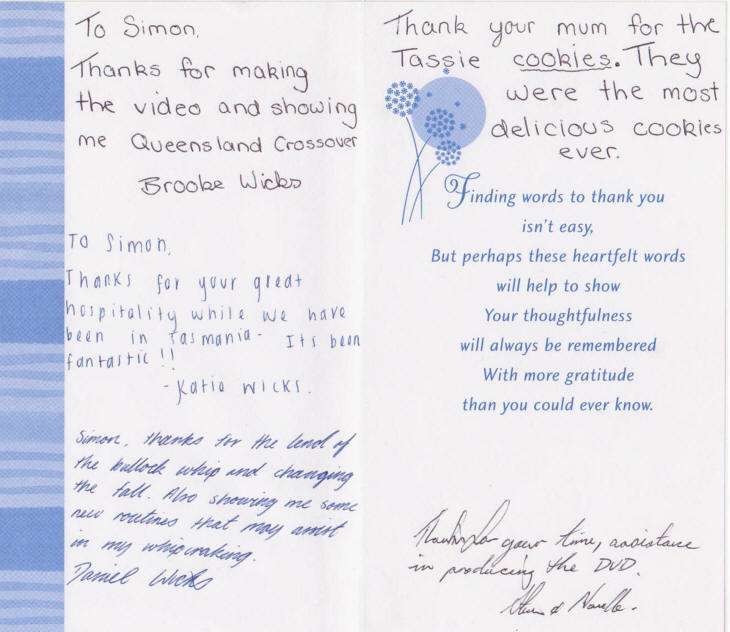 To Simon,
Thanks for making
the video and showing
me Queensland Crossover
Brooke Wicks
To Simon,
Thanks for your great
hospitality while we have
been in Tasmania - Its been
fantastic!!
- Katie Wicks.
Simon, thanks for the lend of
the bullock whip and changing
the fall. Also showing me some
new routines that may assist
in my whipcraking.
Daniel Wicks
Thank your mum for the
Tassie cookies. They
were the most
delicious cookies
ever.
Finding words to thank you
isn't easy,
But perhaps these heartfelt words
will help to show
Your thoughtfulness
will always be remembered
With more gratitude
than you could ever know.
Thanks for your time, assistance
in producing the DVD.
& Narelle.